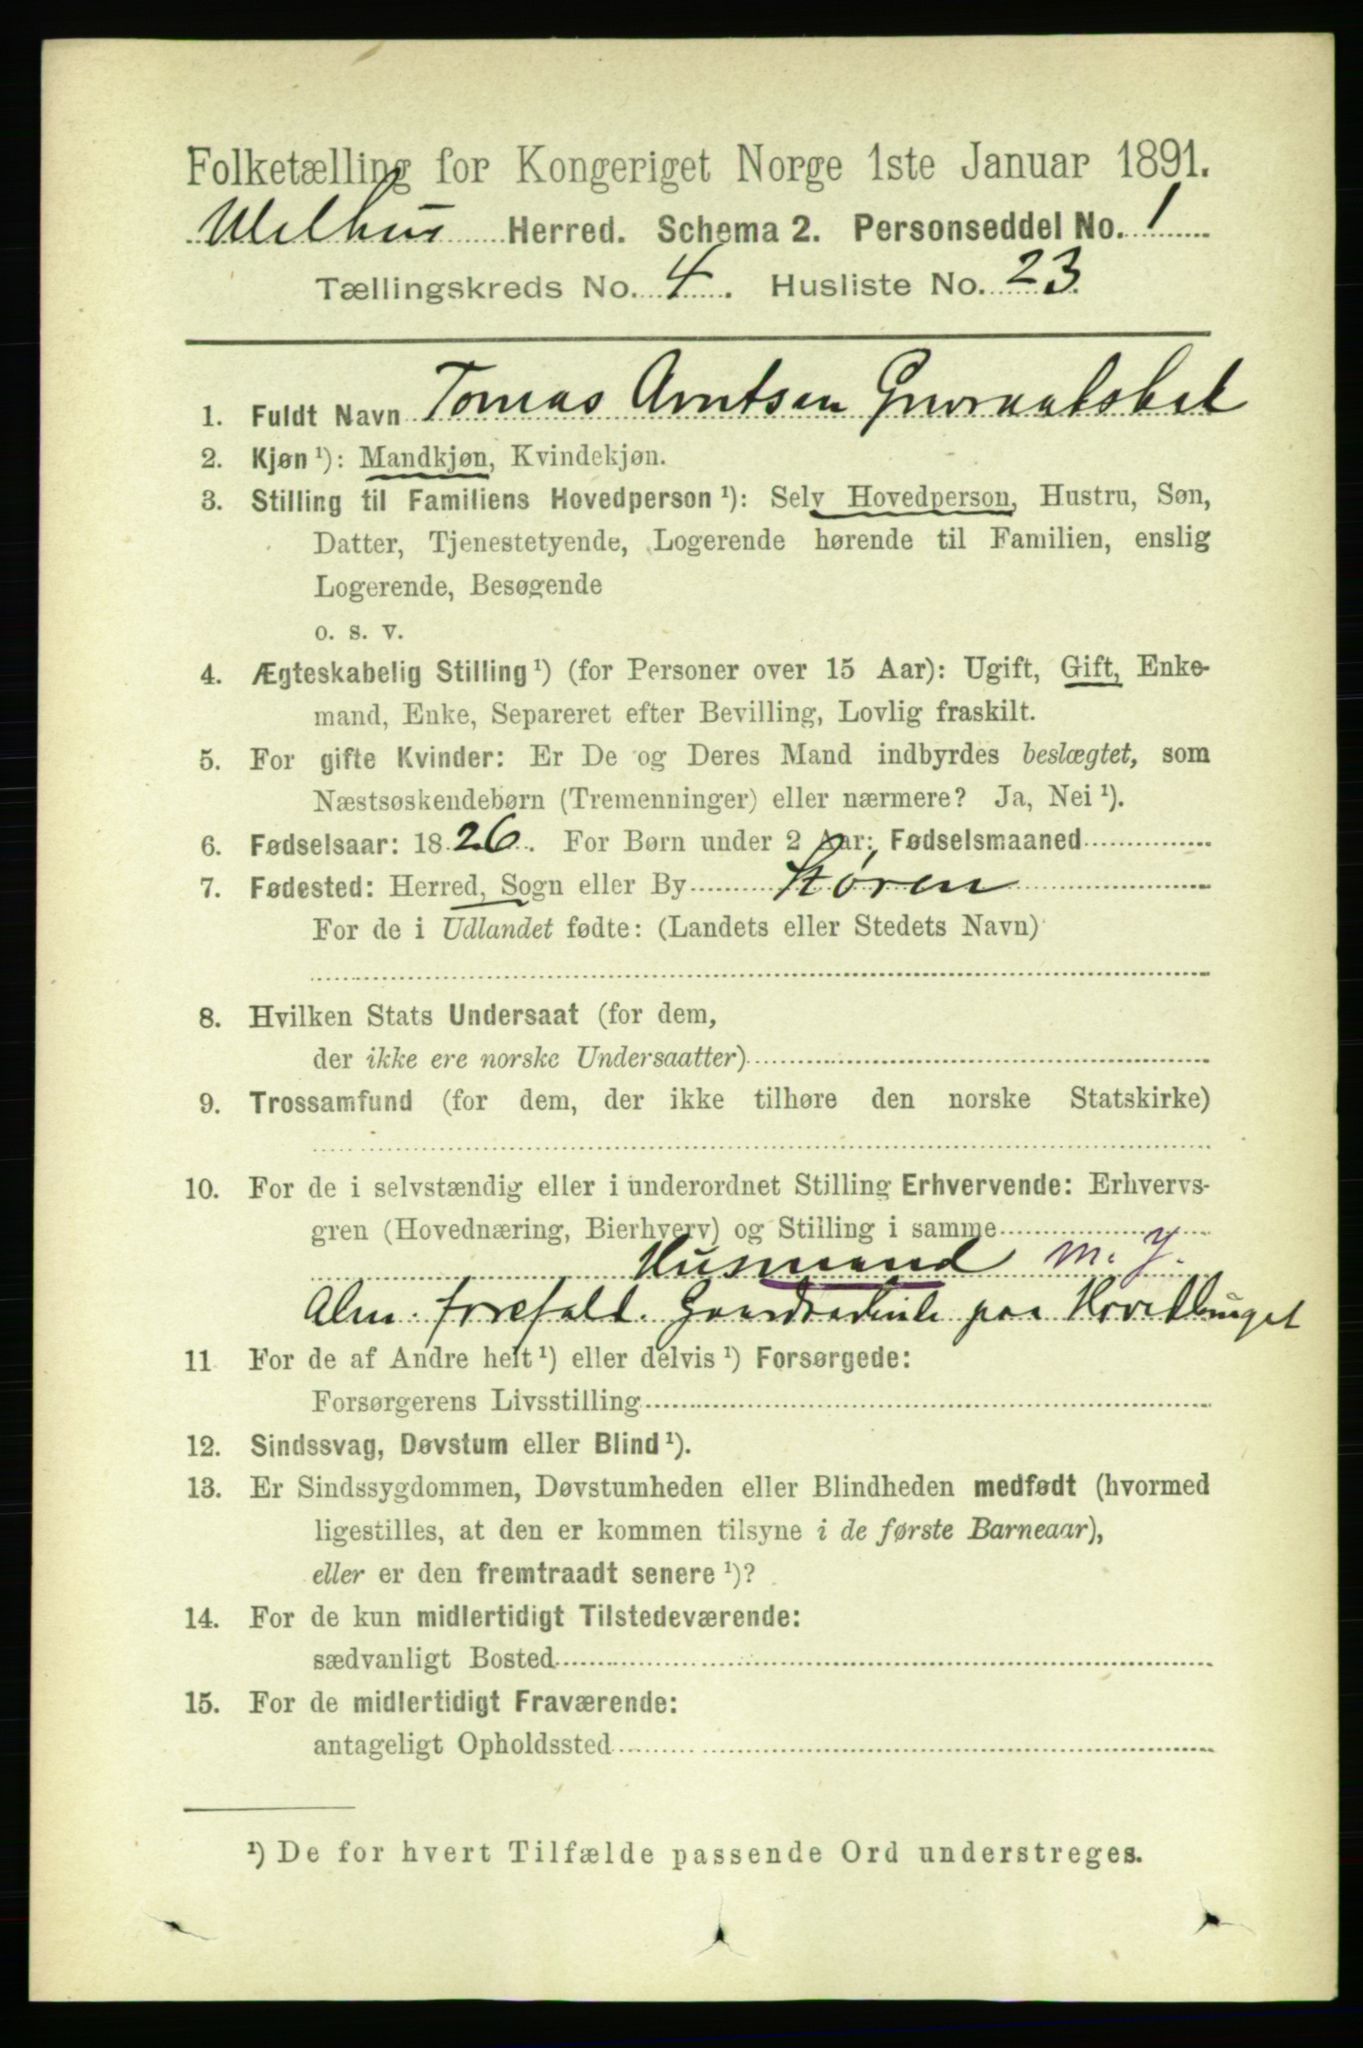 Folketælling for Kongeriget Norge 1ste Januar 1891.
Melhus Herred. Schema 2. Personseddel No. 1
Tællingskreds No. 4. Husliste No. 23
1. Fuldt Navn Tomas Arntsen
2. Kjøn ¹): Mandkjøn, Kvindekjøn.
3. Stilling til Familiens Hovedperson ¹): Selv Hovedperson, Hustru, Søn,
Datter, Tjenestetyende, Logerende hørende til Familien, enslig
Logerende, Besøgende
o. s. v.
4. Ægteskabelig Stilling ¹) (for Personer over 15 Aar): Ugift, Gift, Enke-
mand, Enke, Separeret efter Bevilling, Lovlig fraskilt.
5. For gifte Kvinder: Er De og Deres Mand indbyrdes beslægtet, som
Næstsøskendebørn (Tremenninger) eller nærmere? Ja, Nei ¹).
6. Fødselsaar: 1826. For Børn under 2 Aar: Fødselsmaaned
7. Fødested: Herred, Sogn eller By Støren
For de i Udlandet fødte: (Landets eller Stedets Navn)
8. Hvilken Stats Undersaat (for dem,
der ikke ere norske Undersaatter)
9. Trossamfund (for dem, der ikke tilhøre den norske Statskirke)
10. For de i selvstændig eller i underordnet Stilling Erhvervende: Erhvervs-
gren (Hovednæring, Bierhverv) og Stilling i samme
Husmand m. J.
Alm. forefald. paa
11 For de af Andre helt ¹) eller delvis ¹) Forsørgede:
Forsørgerens Livsstilling
12. Sindssvag, Døvstum eller Blind ¹).
13. Er Sindssygdommen, Døvstumheden eller Blindheden medfødt (hvormed
ligestilles, at den er kommen tilsyne i de første Barneaar),
eller er den fremtraadt senere ¹)?
14. For de kun midlertidigt Tilstedeværende:
sædvanligt Bosted
15. For de midlertidigt Fraværende:
antageligt Opholdssted
¹) De for hvert Tilfælde passende Ord understreges.